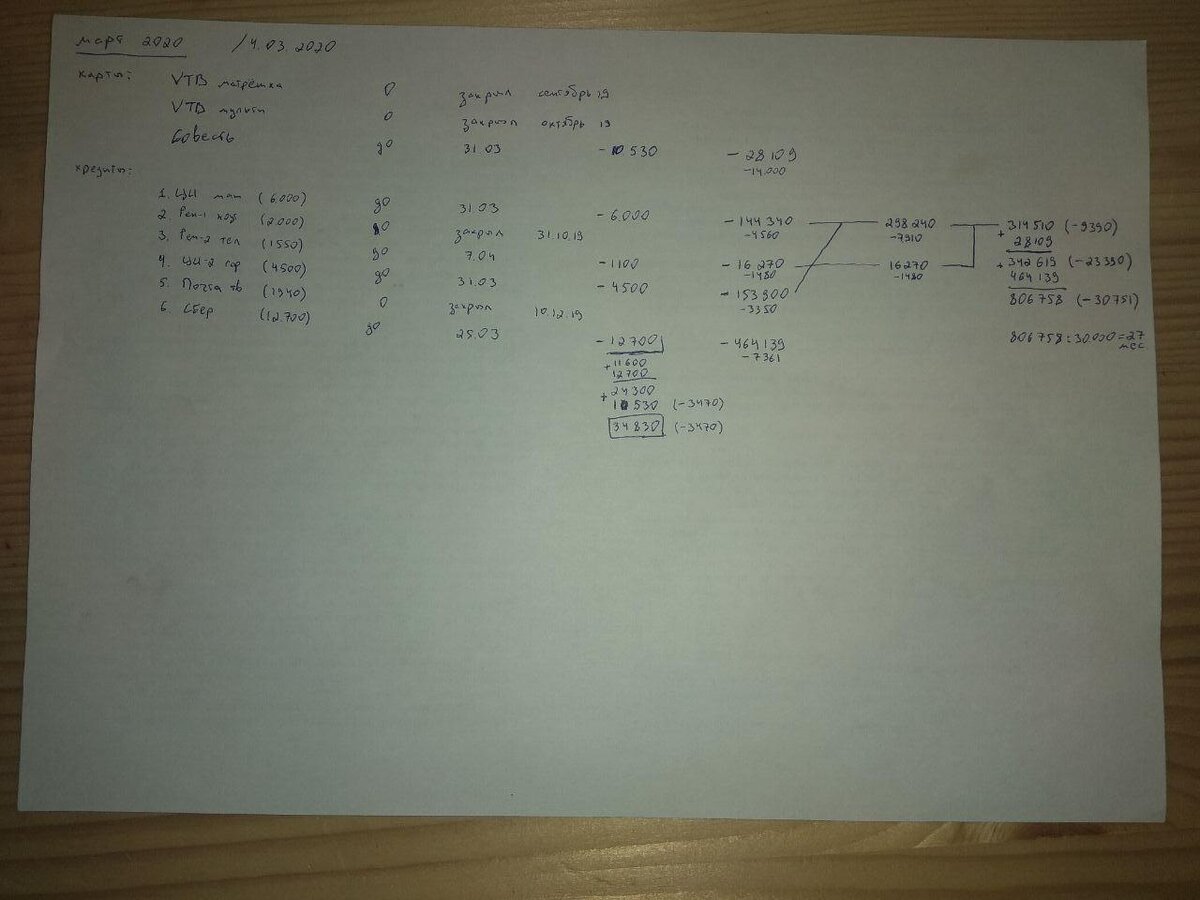 март 2020 /4.03.2020
карты: VTB матрёшка 0 закрыл сентябрь 19
VTB мульти 0 закрыл октябрь 19
Совесть до 31.03 -10 530 -28109
-14.000
кредиты:
1. (6.000) до 31.03 -6.000 -144 340 298 240 314 510 (-9390)
-4560 -7910 + 28109
2. Рен-1 (2.000) 0 закрыл 31.10.19
3. Рен-2 тел (1550) до 7.04 -1100 -16 270 16270 342 619 (-23390)
-1480 -1480 + 464 139
4. (4500) до 31.03 -4500 -153 900 806 758 (-30751)
-3350
5. Почта тв (1940) 0 закрыл 10.12.19
6. Сбер (12.700) до 25.03 -12700 -464139 806758:30.000=27
-7361 мес.
+11600
12700
24300
+ 10530 (-3470)
34830 (-3470)